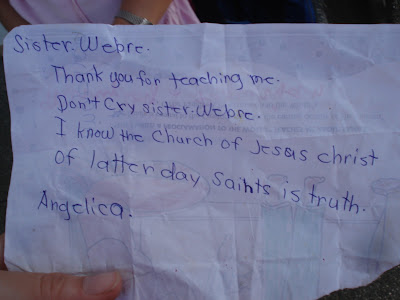 Sister. Webre.
Thank you for teaching me.
Don't Cry sister. Webre.
I know the Church of Jesus christ
Of latter day Saints is truth.
Angelica.